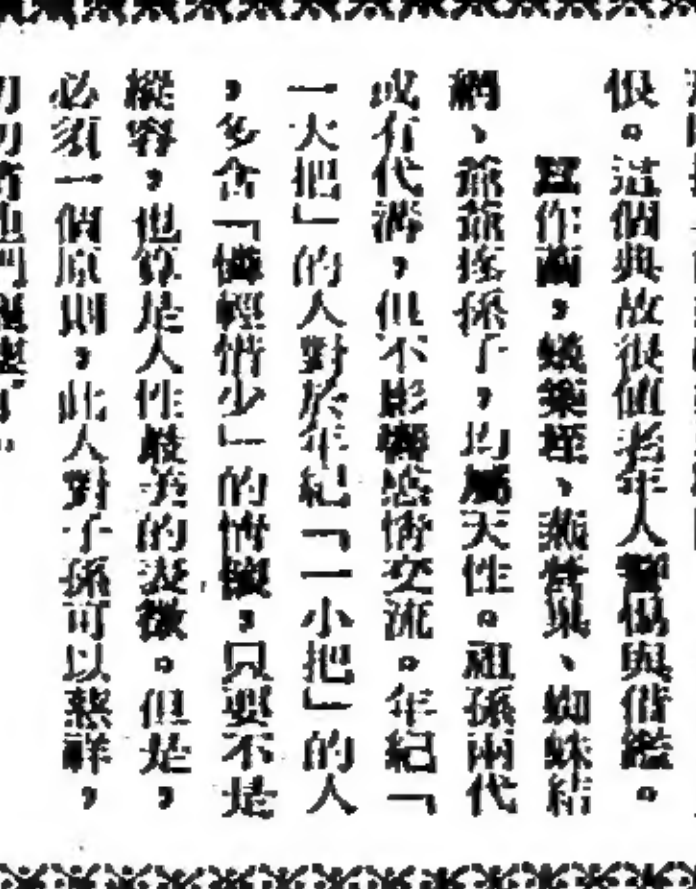 恨。這個典故很值老年人警惕與借鑑。
蠶作繭,蟻築垤、燕營巢、蜘蛛結
網、爺爺疼孫子,均屬天性。祖孫兩代
或有代溝,但不影響感情交流。年紀「
一大把」的人對於年紀「一小把」的人
,多含「憐輕惜少」的情懷,只要不是
縱容,也算是人性最美的表徵。但是,
必須一個原則,此人對子孫可以慈祥,